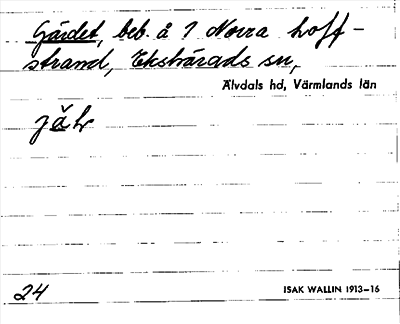 Gärdet, beb. å 1 Norra Loff-
strand, Ekshärads sn,
Älvdals hd, Värmlands län
24
ISAK WALLIN 1913–16